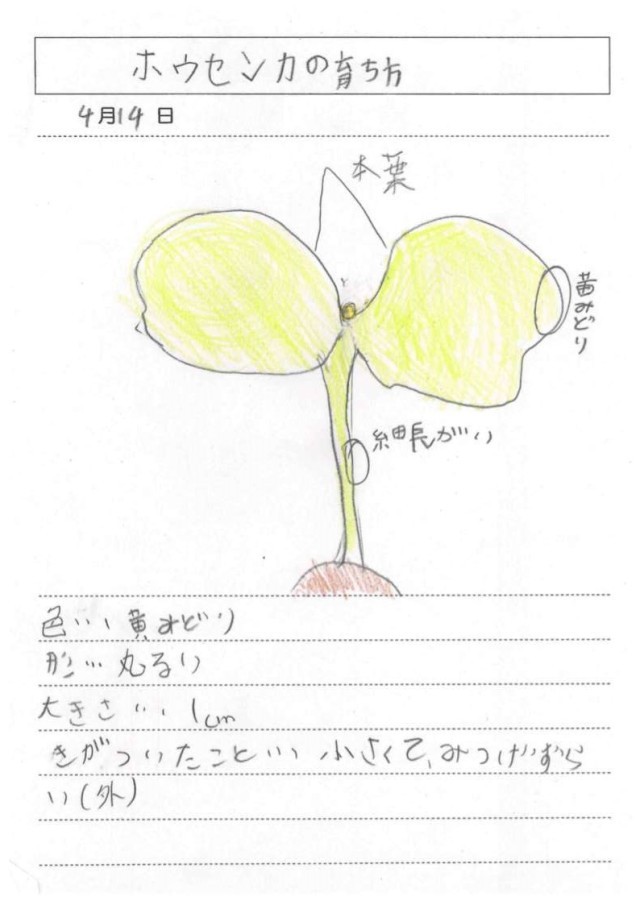 ホウセンカの育ち方
4月14日
本葉
黄みどり
細長がい
色…黄みどり
形…丸るい
大きさ…1cm
きがついたこと…小さくて、みつけずら
い(外)